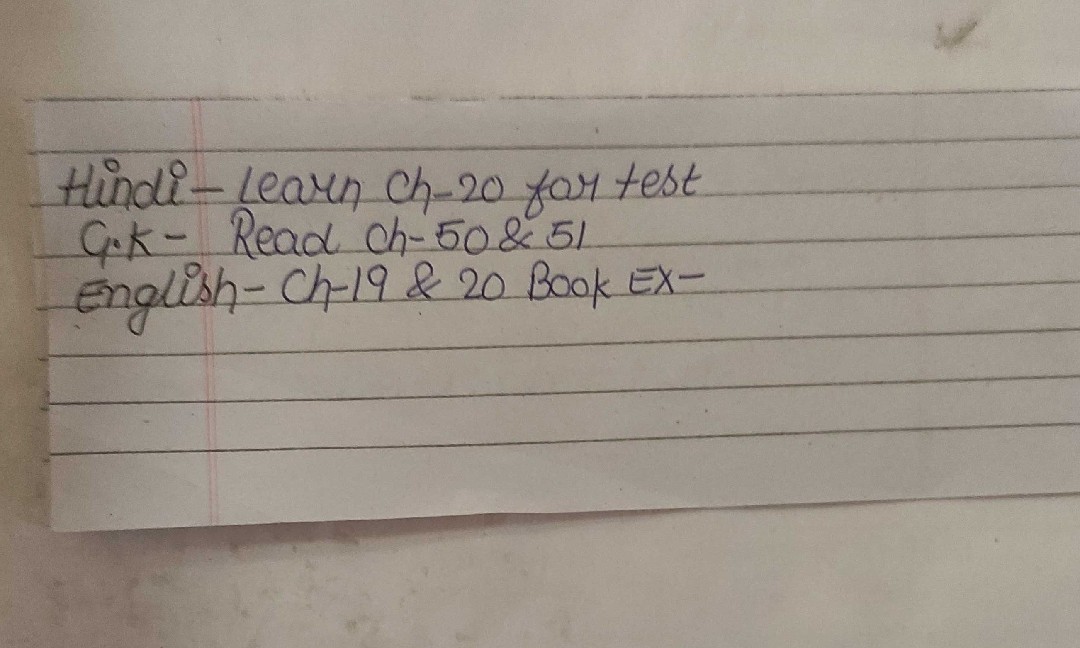 Hindi - Learn Ch-20 for test
G.K - Read Ch-50 & 51
English - Ch-19 & 20 Book EX-